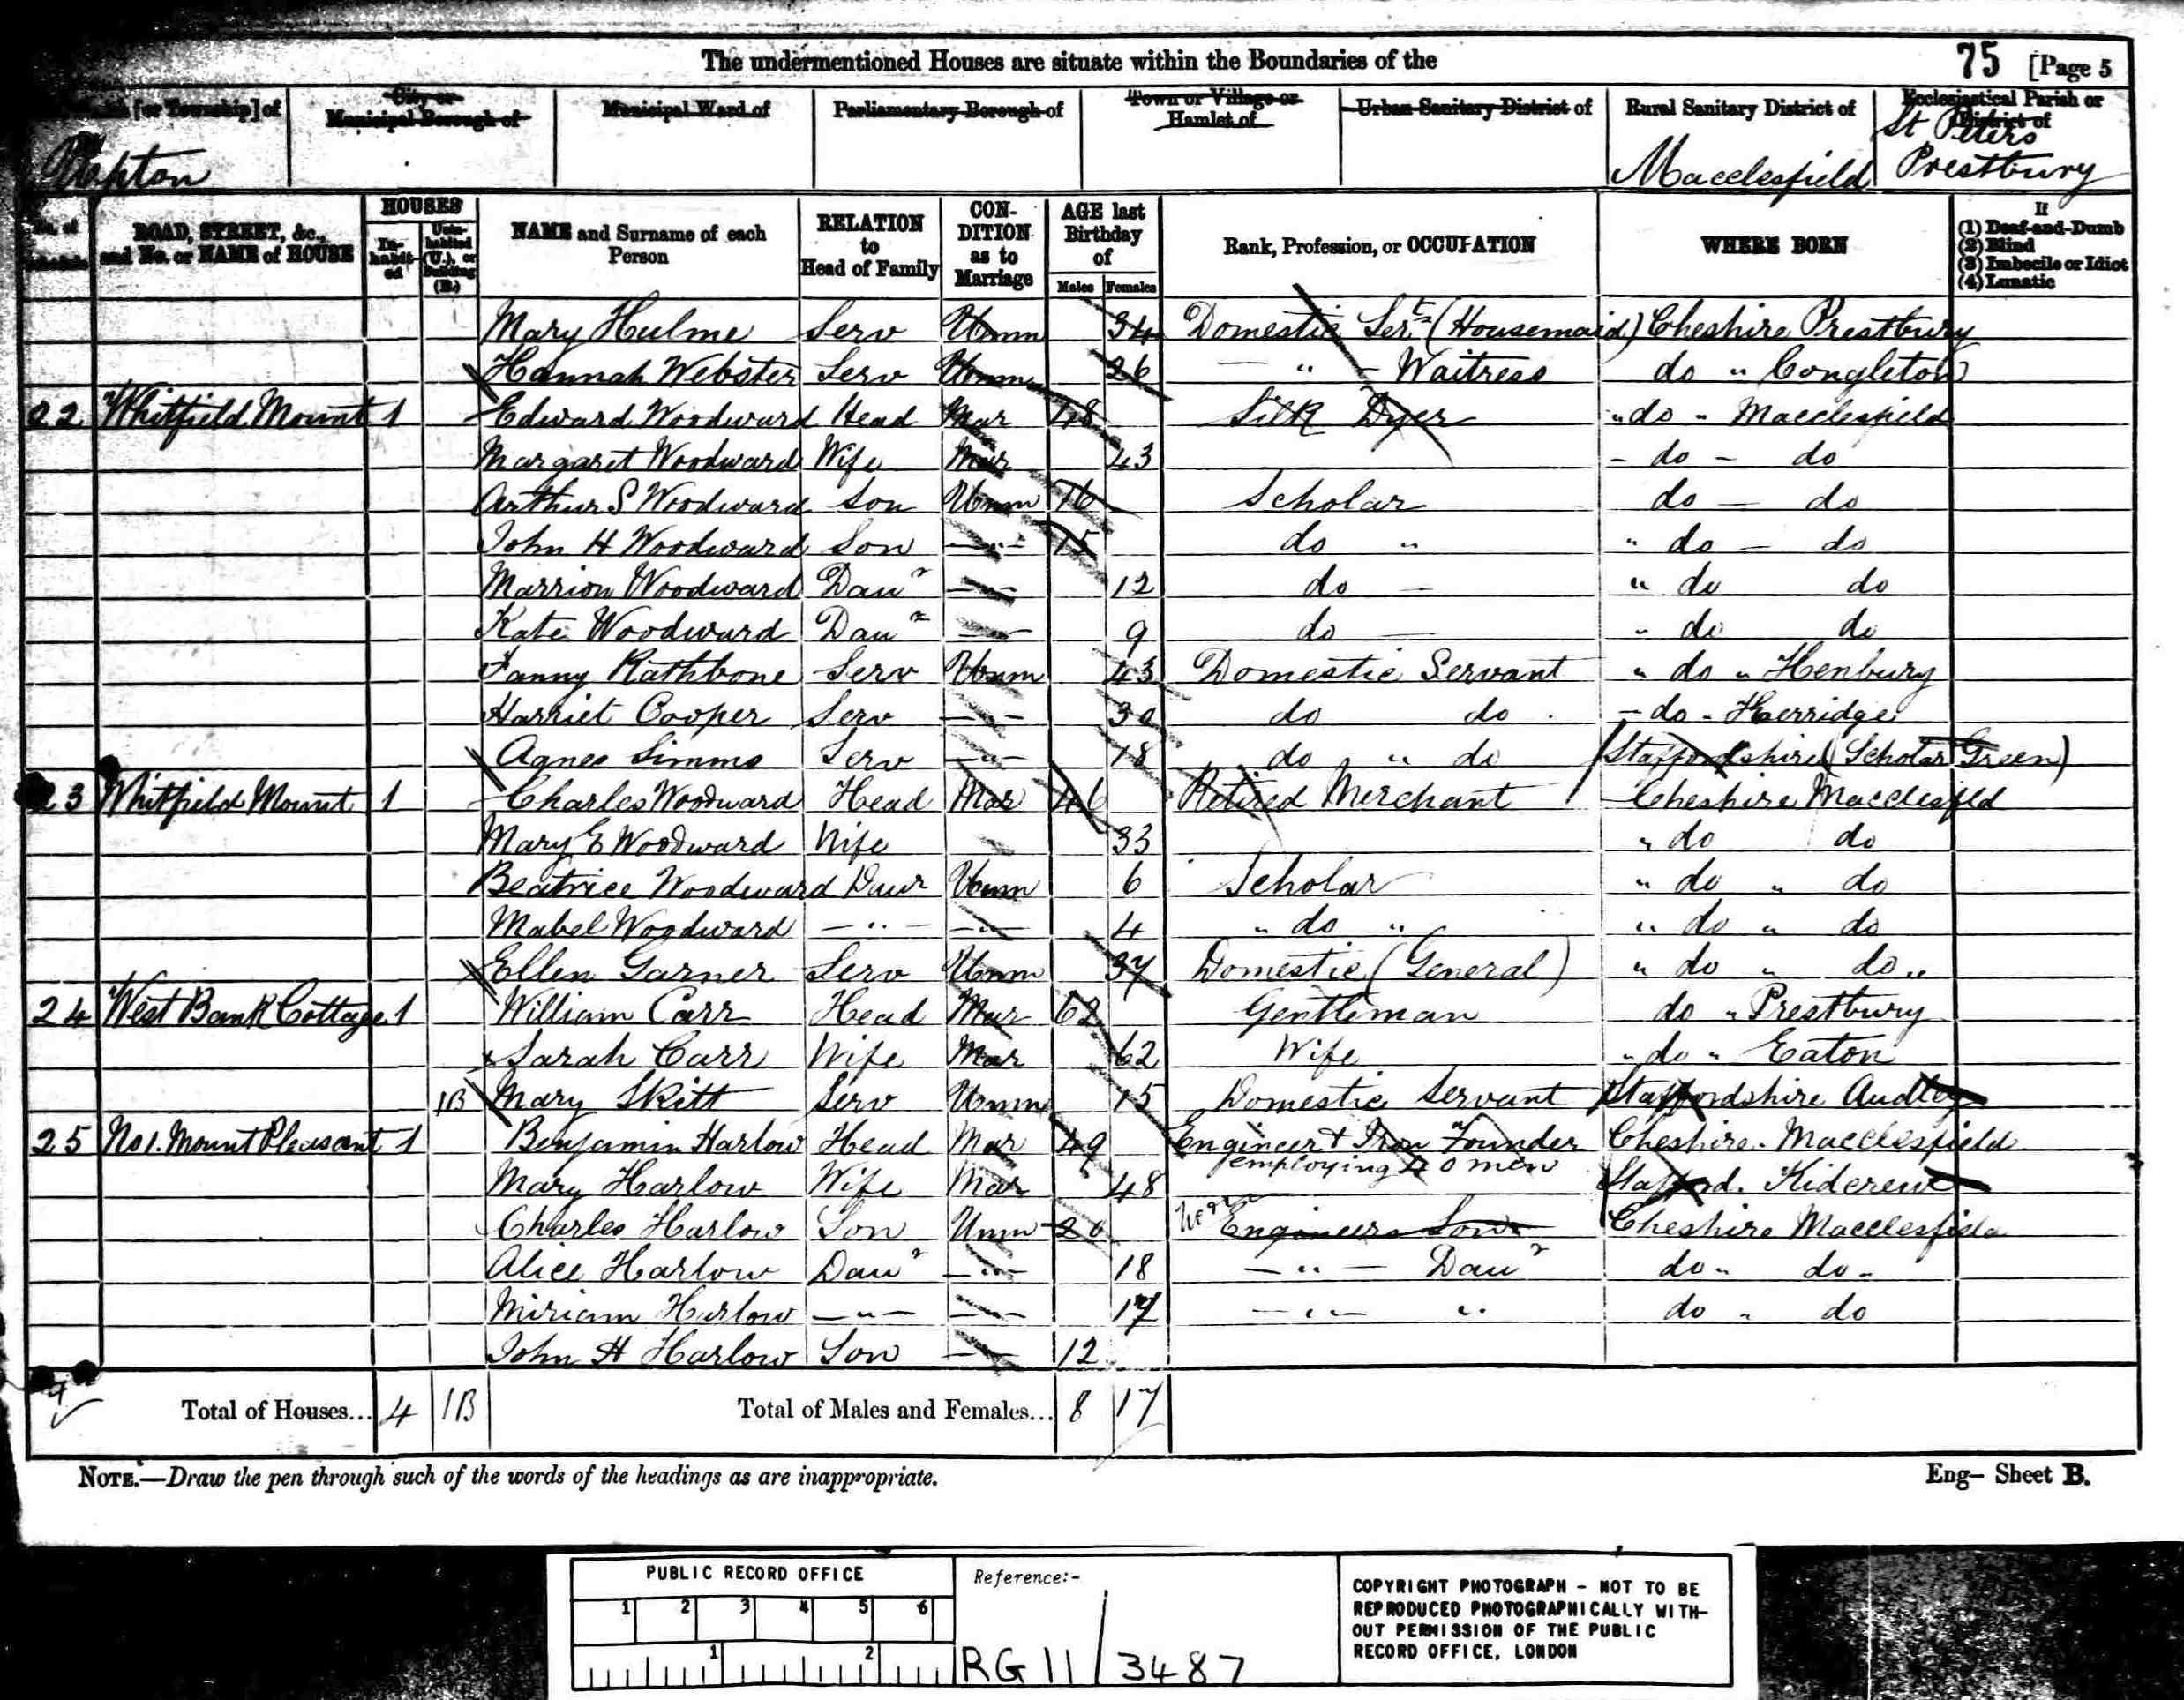 The undermentioned Houses are situate within the Boundaries of the
75 [Page 5
[or Township] of
City or Municipal Borough of
Municipal Ward of
Parliamentary Borough of
Town or Village or Hamlet of
Urban Sanitary District of
Rural Sanitary District of
Ecclesiastical Parish or District of
Upton
Macclesfield
St Peters
Prestbury
No. of Schedule
ROAD, STREET, &c., and No. or NAME of HOUSE
HOUSES
In-habit-ed
Unin-habited (U.), or Building (B.)
NAME and Surname of each Person
RELATION to Head of Family
CON-DITION as to Marriage
AGE last Birthday of
Males Females
Rank, Profession, or OCCUPATION
WHERE BORN
If
(1) Deaf-and-Dumb
(2) Blind
(3) Imbecile or Idiot
(4) Lunatic
Mary Hulme Serv Unm 34 Domestic Sert (Housemaid) Cheshire Prestbury
Hannah Webster Serv Unm 26 — " - Waitress do " Congleton
22 Whitfield Mount 1 Edward Woodward Head Mar 48 Silk Dyer " do " Macclesfield
Margaret Woodward Wife Mar 43 - do - do
Arthur S Woodward Son Unm 16 Scholar do - do
John H Woodward Son — " — 15 do " " do - do
Marrion Woodward Daur — " — 12 do - " do do
Kate Woodward Daur — " — 9 do — " do do
Fanny Rathbone Serv Unm 43 Domestic Servant " do " Henbury
Harriet Cooper Serv — " — 30 do do - do - Kerridge
Agnes Simms Serv — " — 18 do " do Staffordshire (Scholar Green)
23 Whitfield Mount 1 Charles Woodward Head Mar 46 Retired Merchant Cheshire Macclesfld
Mary E Woodward Wife 33 " do do
Beatrice Woodward Daur Unm 6 Scholar " do " do
Mabel Woodward — " — — " — 4 " do " " do " do
Ellen Garner Serv Unm 37 Domestic (General) " do " do "
24 West Bank Cottage 1 William Carr Head Mar 62 Gentleman do " Prestbury
Sarah Carr Wife Mar 62 Wife " do " Eaton
1B Mary Skitt Serv Unm 15 Domestic Servant Staffordshire Audley
25 No 1. Mount Pleasant 1 Benjamin Harlow Head Mar 49 Engineer & Iron Founder Cheshire. Macclesfield
employing 40 men
Mary Harlow Wife Mar 48 Stafford. Kidcrew
Charles Harlow Son Unm 20 Engineers Son Cheshire Macclesfield
Alice Harlow Daur — " — 18 — " — Daur do " do "
Miriam Harlow — " — — " — 17 — " — " do " do
John H Harlow Son — " — 12
Total of Houses... 4 1B Total of Males and Females... 8 17
NOTE.—Draw the pen through such of the words of the headings as are inappropriate.
Eng— Sheet B.
PUBLIC RECORD OFFICE
1 2 3 4 5 6
1 2
Reference:-
RG 11 / 3487
COPYRIGHT PHOTOGRAPH - NOT TO BE
REPRODUCED PHOTOGRAPHICALLY WITH-
OUT PERMISSION OF THE PUBLIC
RECORD OFFICE, LONDON